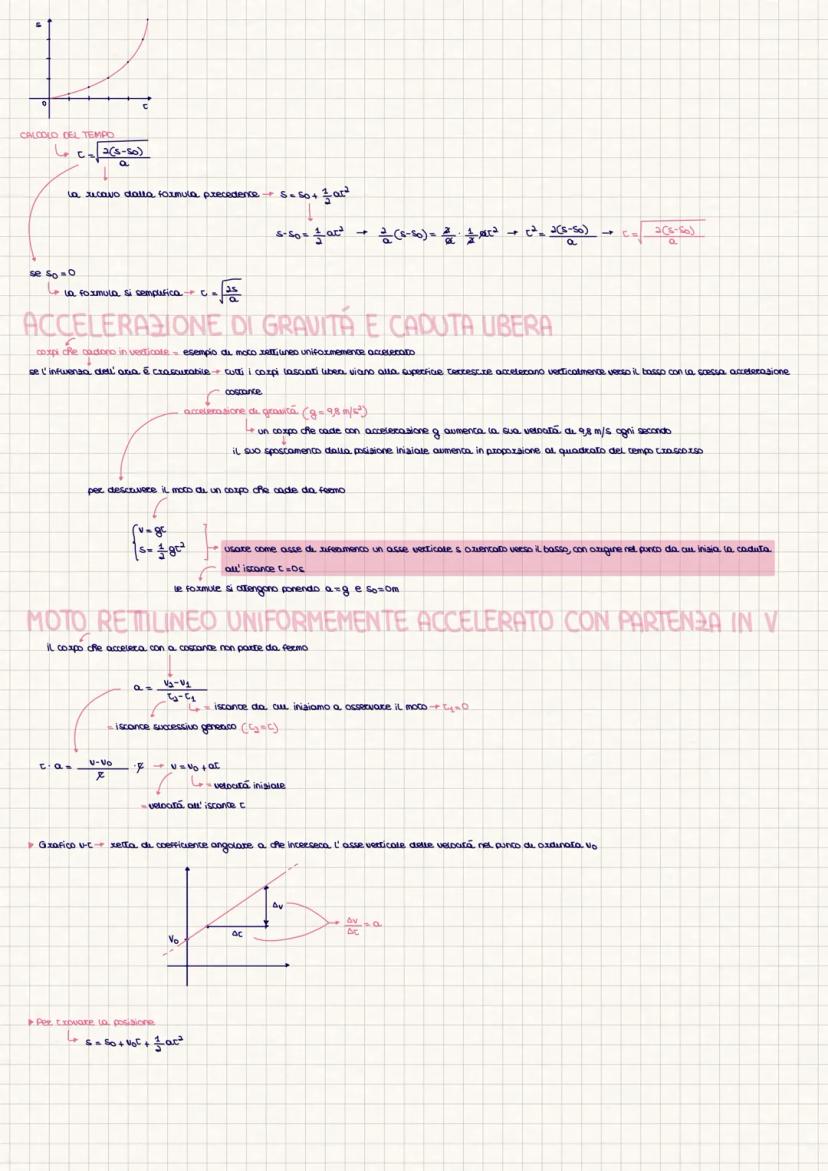 s
0
t
CALCOLO DEL TEMPO
↳ t = √(2(s-s₀)/a)
la ricavo dalla formula precedente → s = s₀ + 1/2 at²
s-s₀ = 1/2 at² → 2/a (s-s₀) = 2/a · 1/2 at² → t² = 2(s-s₀)/a → t = √(2(s-s₀)/a)
se s₀ = 0
↳ la formula si semplifica → t = √(2s/a)
ACCELERAZIONE DI GRAVITÁ E CADUTA LIBERA
corpi che cadono in verticale = esempio di moto rettilineo uniformemente accelerato
se l'influenza dell'aria é trascurabile → tutti i corpi lasciati liberi vicino alla superficie terrestre accelerano verticalmente verso il basso con la stessa accelerazione
costante
accelerazione di gravitá (g = 9,8 m/s²)
↳ un corpo che cade con accelerazione g aumenta la sua velocitá di 9,8 m/s ogni secondo
il suo spostamento dalla posizione iniziale aumenta in proporzione al quadrato del tempo trascorso
per descrivere il moto di un corpo che cade da fermo
v = gt
s = 1/2 gt²
→ usare come asse di riferimento un asse verticale s orientato verso il basso, con origine nel punto da cui inizia la caduta
all'istante t = 0s
le formule si ottengono ponendo a = g e s₀ = 0m
MOTO RETTILINEO UNIFORMEMENTE ACCELERATO CON PARTENZA IN V
il corpo che accelera con a costante non parte da fermo
a = v₂-v₁/t₂-t₁
↳ = istante da cui iniziamo a osservare il moto → t₁ = 0
= istante successivo generico (t₂ = t)
t · a = v-v₀/t · t → v = v₀ + at
↳ = velocitá iniziale
= velocitá all'istante t
▸ Grafico v-t → retta di coefficiente angolare a che interseca l'asse verticale delle velocitá nel punto di ordinata v₀
Δv
Δt
Δv/Δt = a
V₀
▸ Per trovare la posizione
↳ s = s₀ + v₀t + 1/2 at²